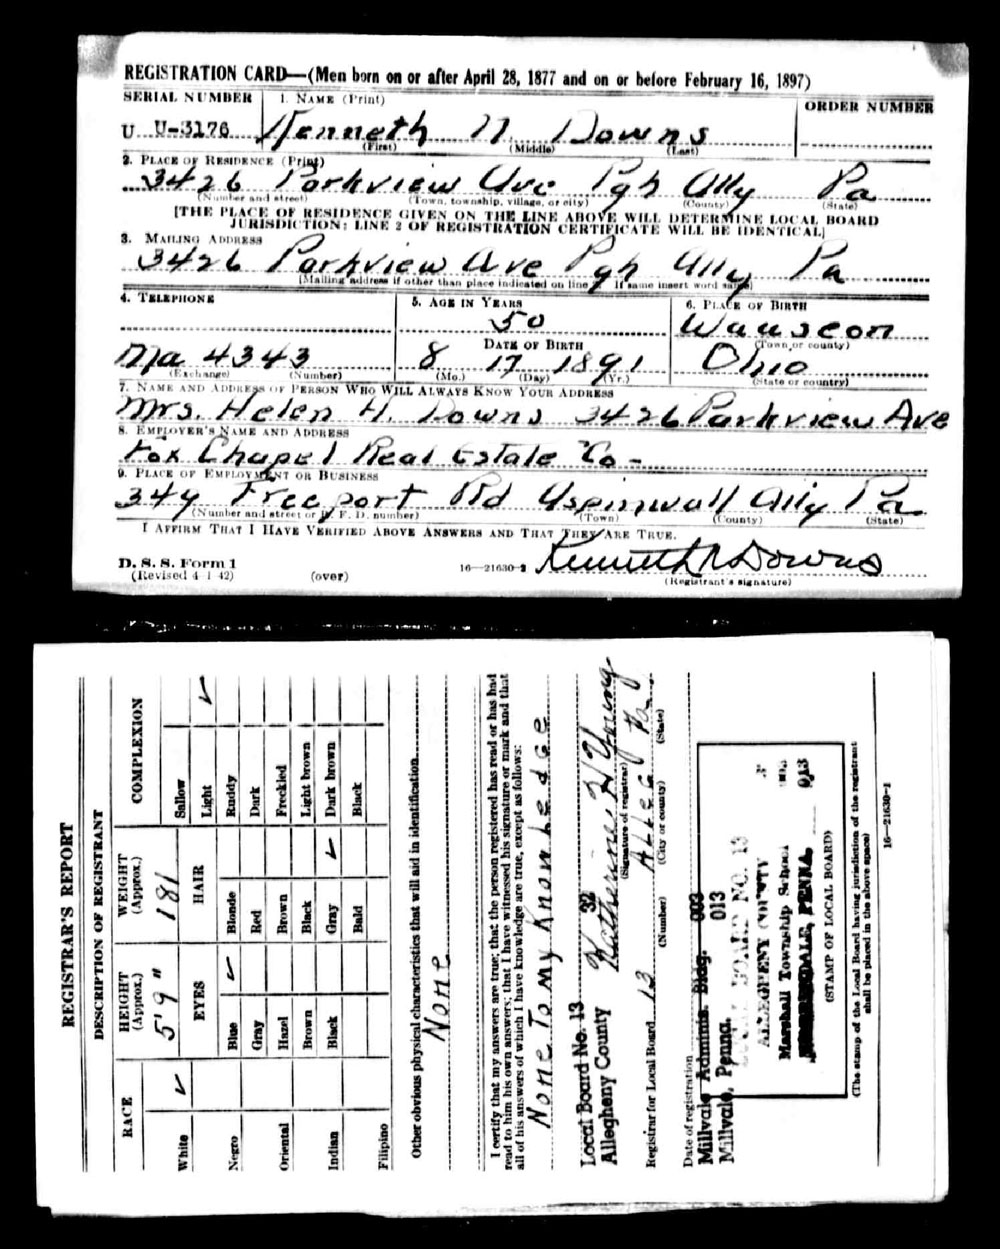 REGISTRATION CARD—(Men born on or after April 28, 1877 and on or before February 16, 1897)
SERIAL NUMBER 1. NAME (Print) ORDER NUMBER
U U-3176 Kenneth N. Downs
(First) (Middle) (Last)
2. PLACE OF RESIDENCE (Print)
3426 Parkview Ave Pgh Ally Pa
(Number and street) (Town, township, village, or city) (County) (State)
[THE PLACE OF RESIDENCE GIVEN ON THE LINE ABOVE WILL DETERMINE LOCAL BOARD
JURISDICTION; LINE 2 OF REGISTRATION CERTIFICATE WILL BE IDENTICAL]
3. MAILING ADDRESS
3426 Parkview Ave Pgh Ally Pa
[Mailing address if other than place indicated on line 2. If same insert word same]
4. TELEPHONE 5. AGE IN YEARS 6. PLACE OF BIRTH
50 Wauseon
DATE OF BIRTH (Town or county)
Ma 4343 8 17 1891 Ohio
(Exchange) (Number) (Mo.) (Day) (Yr.) (State or country)
7. NAME AND ADDRESS OF PERSON WHO WILL ALWAYS KNOW YOUR ADDRESS
Mrs. Helen H. Downs 3426 Parkview Ave
8. EMPLOYER'S NAME AND ADDRESS
Fox Chapel Real Estate Co-
9. PLACE OF EMPLOYMENT OR BUSINESS
344 Freeport Rd Aspinwall Ally Pa
(Number and street or R. F. D. number) (Town) (County) (State)
I AFFIRM THAT I HAVE VERIFIED ABOVE ANSWERS AND THAT THEY ARE TRUE.
D. S. S. Form 1
(Revised 4-1-42) (over) 16—21630-2 Kenneth N Downs
(Registrant's signature)
REGISTRAR'S REPORT
DESCRIPTION OF REGISTRANT
RACE HEIGHT (Approx.) WEIGHT (Approx.) COMPLEXION
5' 9" 181
White ✓
EYES HAIR
Sallow
Light ✓
Negro Blue ✓ Blonde Ruddy
Gray Red Dark
Oriental Hazel Brown Freckled
Brown Black Light brown
Indian Black Gray ✓ Dark brown
Bald Black
Filipino
Other obvious physical characteristics that will aid in identification
None
I certify that my answers are true; that the person registered has read or has had
read to him his own answers; that I have witnessed his signature or mark and that
all of his answers of which I have knowledge are true, except as follows:
None To My Knowledge
Local Board No. 13 32
Allegheny County
Katherine H Young
(Signature of registrar)
Registrar for Local Board 13 Alleg Pa.
(Number) (City or county) (State)
Date of registration
Millvale Adminis. Bldg. 003
Millvale, Penna. 013
LOCAL BOARD NO. 13
ALLEGHENY COUNTY
Marshall Township School
PENNA. 013
(STAMP OF LOCAL BOARD)
(The stamp of the Local Board having jurisdiction of the registrant
shall be placed in the above space)
16—21630-1